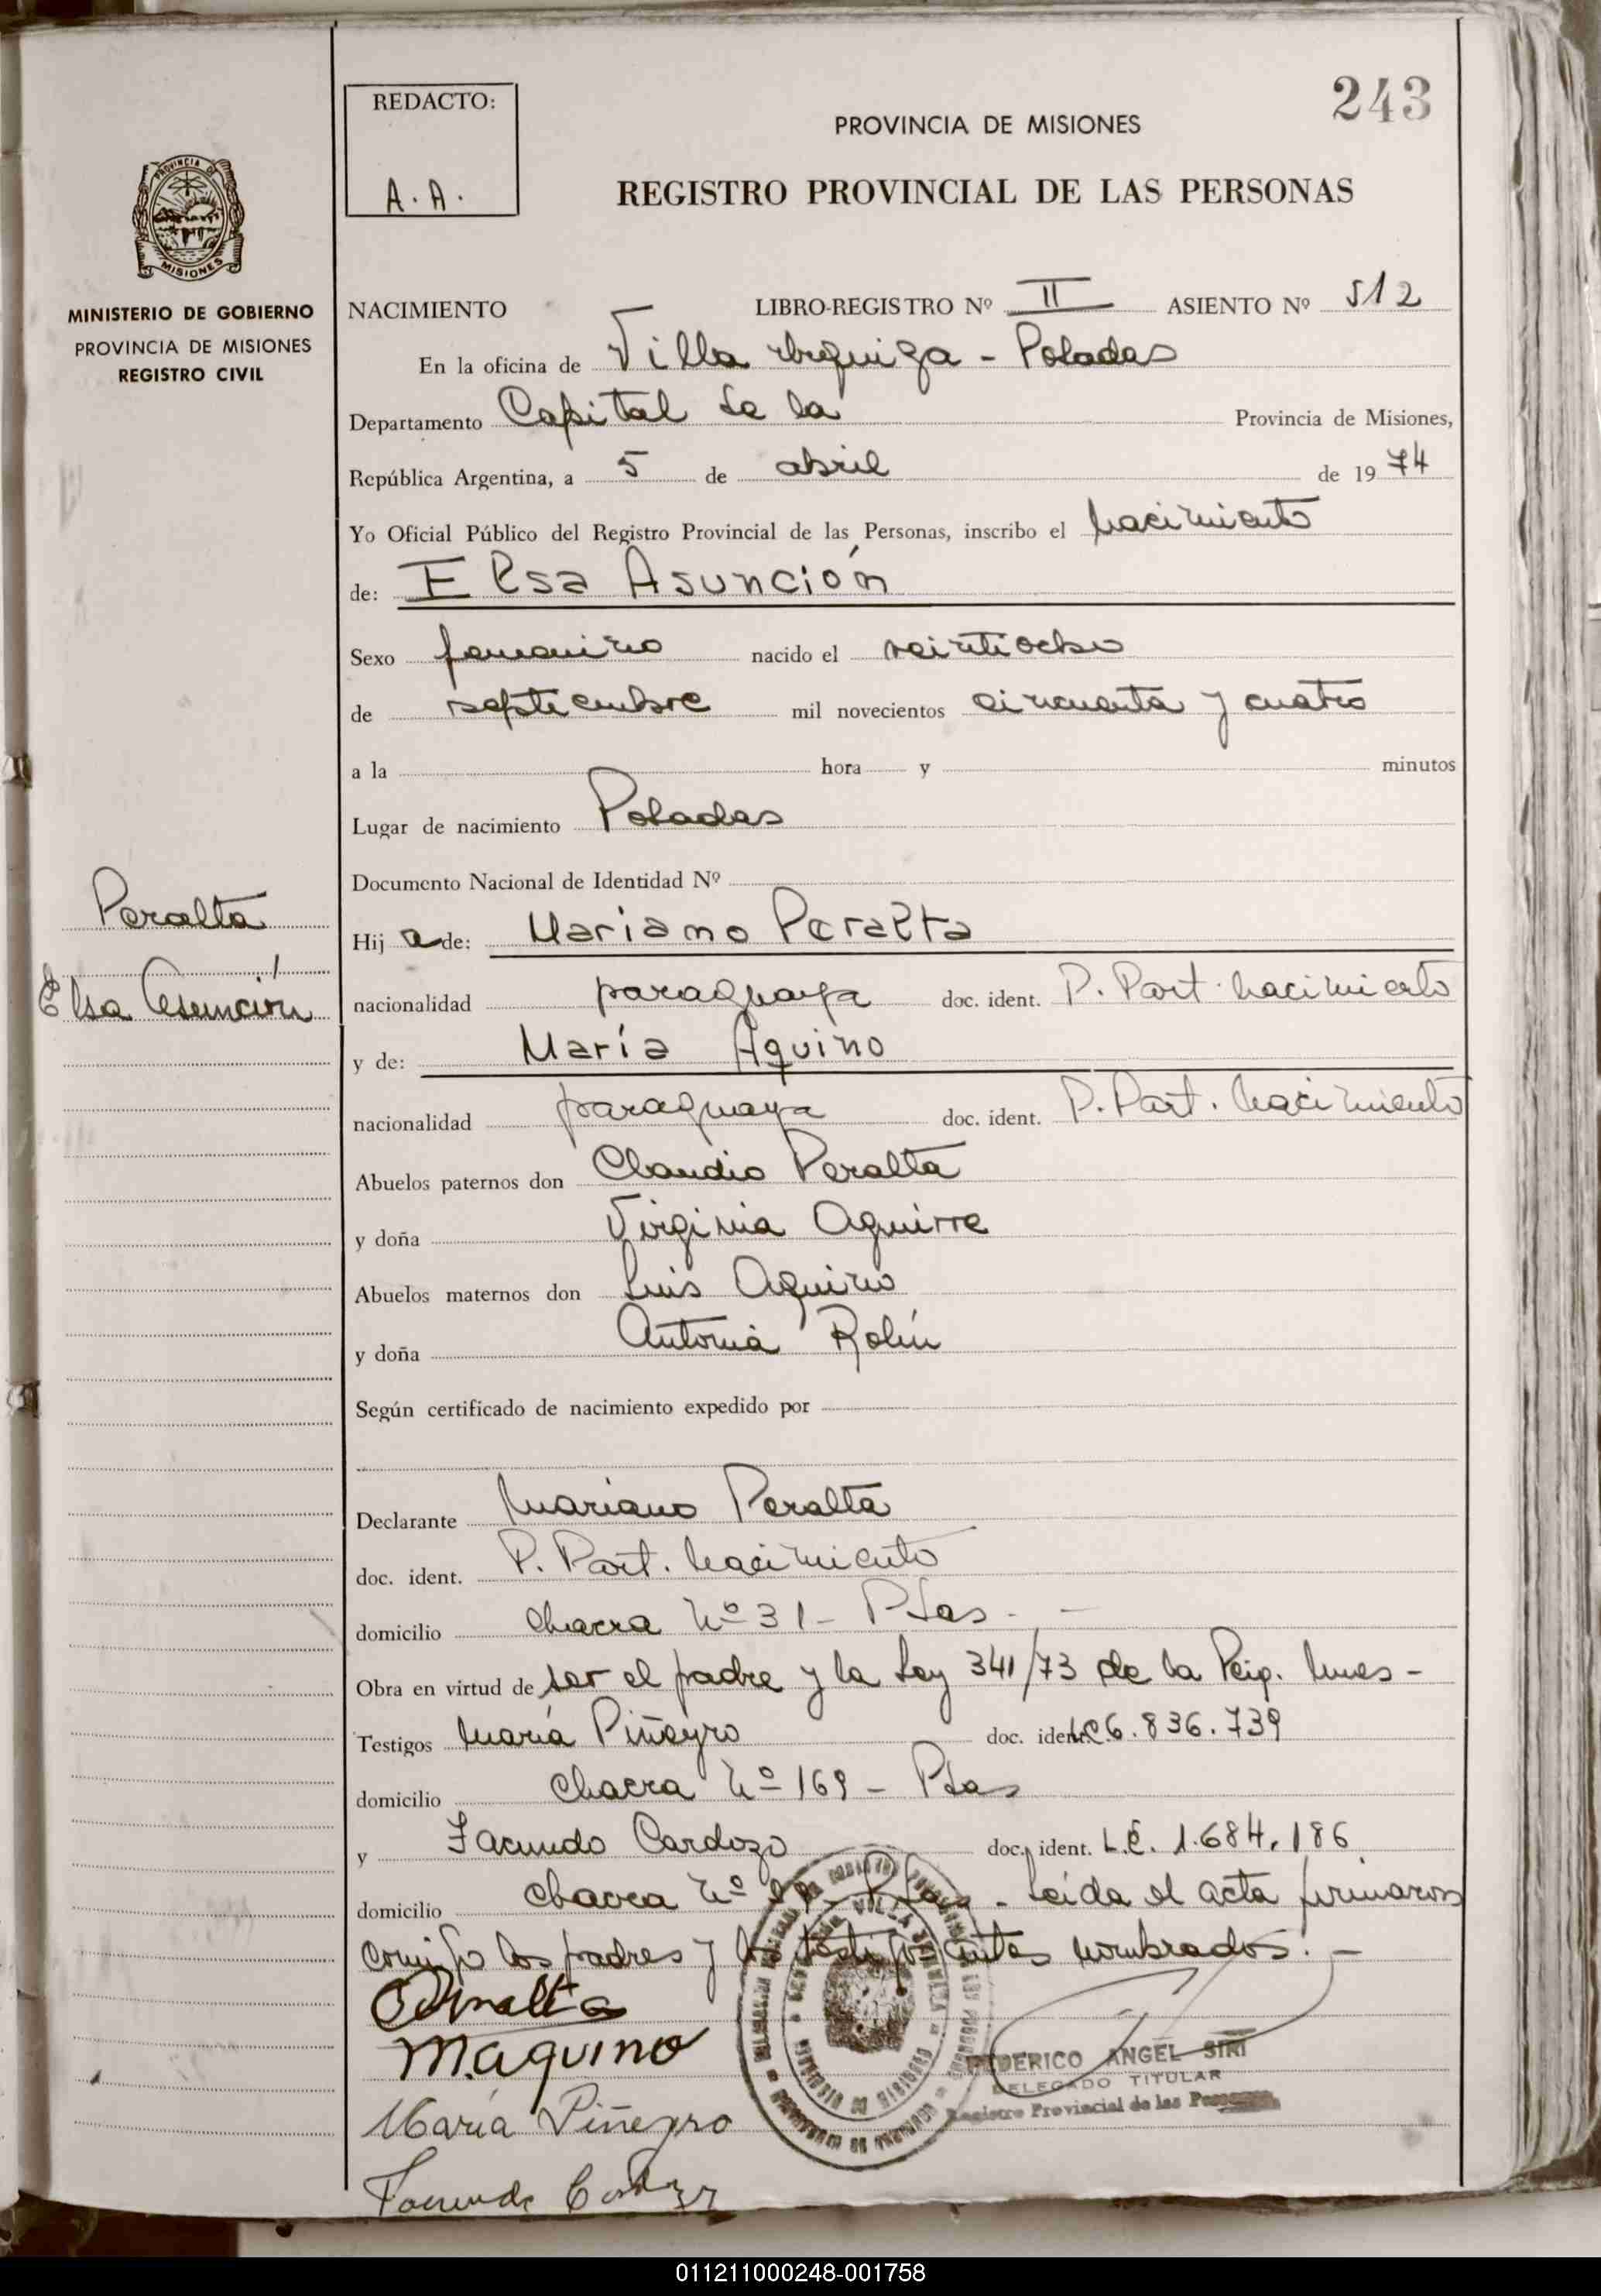 243
REDACTO:
A. A.
PROVINCIA DE MISIONES
REGISTRO PROVINCIAL DE LAS PERSONAS
PROVINCIA DE
MISIONES
MINISTERIO DE GOBIERNO
PROVINCIA DE MISIONES
REGISTRO CIVIL
NACIMIENTO LIBRO-REGISTRO Nº II ASIENTO Nº 512
En la oficina de Villa Urquiza - Posadas
Departamento Capital de la Provincia de Misiones,
República Argentina, a 5 de abril de 1974
Yo Oficial Público del Registro Provincial de las Personas, inscribo el nacimiento
de: Elsa Asunción
Sexo femenino nacido el veintiocho
de septiembre mil novecientos cincuenta y cuatro
a la hora y minutos
Lugar de nacimiento Posadas
Documento Nacional de Identidad Nº
Peralta
Hija de: Mariano Peralta
Elsa Asunción
nacionalidad paraguaya doc. ident. P. Part. nacimiento
y de: María Aquino
nacionalidad paraguaya doc. ident. P. Part. nacimiento
Abuelos paternos don Claudio Peralta
y doña Virginia Aguirre
Abuelos maternos don Luis Aquino
y doña Antonia Rolín
Según certificado de nacimiento expedido por
Declarante Mariano Peralta
doc. ident. P. Part. nacimiento
domicilio Chacra Nº 31 - Pdas. -
Obra en virtud de ser el padre y la Ley 341/73 de la Pcia. Mnes -
Testigos María Piñeyro doc. ident. LC 6.836.739
domicilio Chacra Nº 169 - Pdas
y Facundo Cardozo doc. ident. L.E. 1.684.186
domicilio Chacra Nº Pdas - Leída el acta firmaron
conmigo los padres y los testigos antes nombrados. -
Peralta
M. aquino
María Piñeyro
FEDERICO ANGEL SIRI
DELEGADO TITULAR
Registro Provincial de las Personas
Facundo Cardozo
011211000248-001758